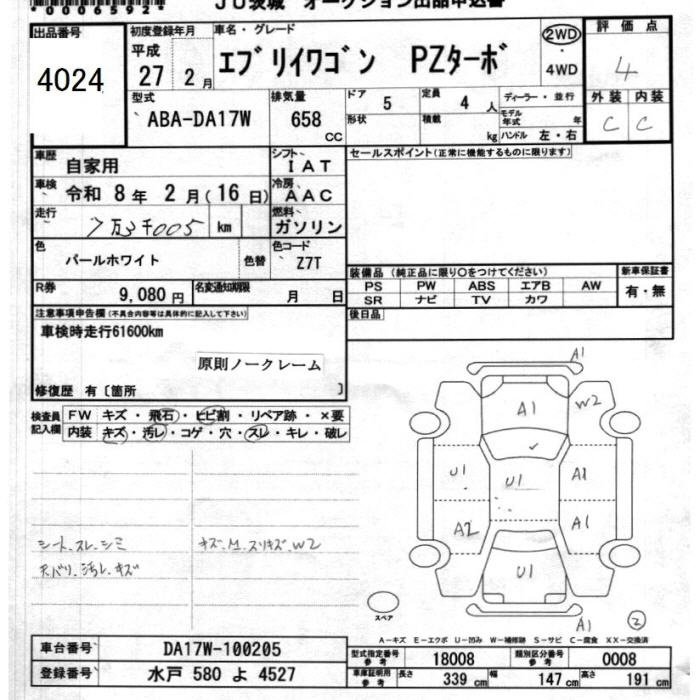 *0006592*
JU茨城 オークション出品申込書
出品番号 初度登録年月 車名・グレード 評価点
4024
平成 27 年 2 月
エブリイワゴン PZターボ
2WD
4WD
4
外装 内装
C C
型式 ABA-DA17W
排気量 658 CC
ドア 5 定員 4 人
形状 積載 kg
ディーラー・並行
モデル年式 年
ハンドル 左・右
車歴 自家用
シフト IAT
セールスポイント(正常に機能するものに限ります)
車検 令和 8 年 2 月(16 日)
冷房 AAC
走行 7万3千005 km
燃料 ガソリン
色 パールホワイト 色替
色コード Z7T
装備品(純正品に限り○をつけてください) 新車保証書
PS PW ABS エアB AW 有・無
SR ナビ TV カワ
R券 9,080 円 名変通知期限 月 日
後日品
注意事項申告欄(不具合内容等は具体的に記入して下さい)
車検時走行61600km
原則ノークレーム
修復歴 有〔箇所 〕
検査員記入欄
FW キズ・飛石・ヒビ割・リペア跡・×要
内装 キズ・汚レ・コゲ・穴・スレ・キレ・破レ
シート.スレ.シミ キズ.M.スリキズ.W2
天バリ.汚レ.キズ
A1
A1 W2
U1 U1 A1
A2 A1
U1
A1 ②
スペア
A-キズ E-エクボ U-凹み W-補修跡 S-サビ C-腐食 XX-交換済
車台番号 DA17W-100205
登録番号 水戸 580 よ 4527
型式指定番号 参考 18008 類別区分番号 参考 0008
車庫証明用 参考 長さ 339 cm 幅 147 cm 高さ 191 cm